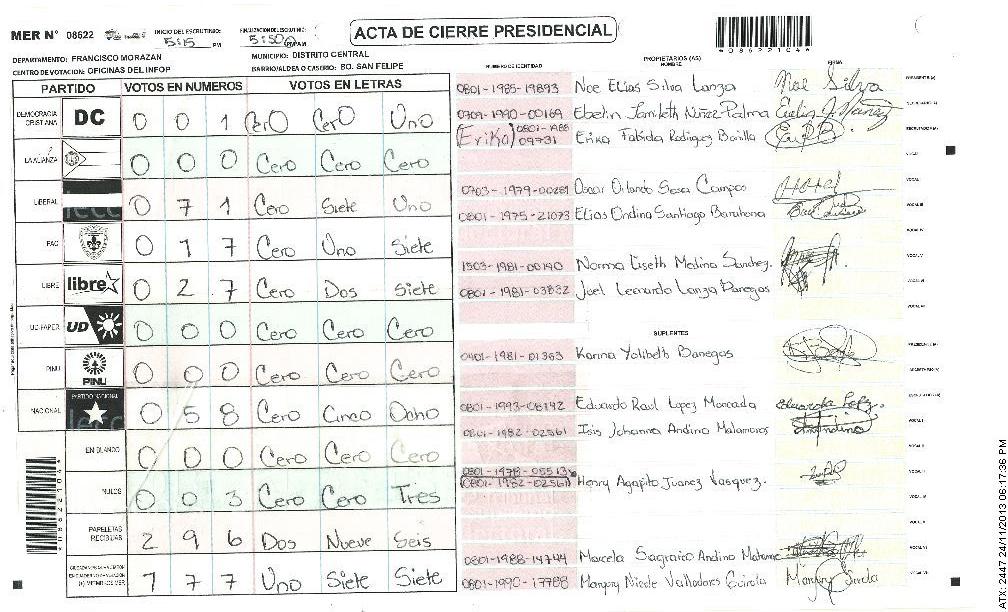 MER N° 08622
INICIO DEL ESCRUTINIO: 5:15 PM
FINALIZACION DEL ESCRUTINIO: 5:50 PM
ACTA DE CIERRE PRESIDENCIAL
*086221044*
DEPARTAMENTO: FRANCISCO MORAZAN
MUNICIPIO: DISTRITO CENTRAL
CENTRO DE VOTACION: OFICINAS DEL INFOP
BARRIO/ALDEA O CASERIO: BO. SAN FELIPE
PARTIDO VOTOS EN NUMEROS VOTOS EN LETRAS
DEMOCRACIA CRISTIANA DC 0 0 1 CerO CerO Uno
LA ALIANZA 0 0 0 Cero Cero Cero
LIBERAL 0 7 1 Cero Siete Uno
PAC 0 1 7 Cero Uno Siete
LIBRE libre 0 2 7 Cero Dos Siete
UD-FAPER UD 0 0 0 Cero Cero Cero
PINU PINU 0 0 0 Cero Cero Cero
NACIONAL PARTIDO NACIONAL 0 5 8 Cero Cinco Ocho
EN BLANCO 0 0 0 Cero Cero Cero
NULOS 0 0 3 Cero Cero Tres
PAPELETAS RECIBIDAS 2 9 6 Dos Nueve Seis
1 7 7 Uno Siete Siete
NUMERO DE IDENTIDAD
PROPIETARIOS (AS)
NOMBRE
FIRMA
0801-1985-19893 Noe Elias Silva Lanza Noé Silva
0709-1990-00169 Ebelin Jamileth Nuñez Palma
(Erika) 0801-1988 09731 Erika Fabiola Rodriguez Bonilla
0703-1979-00281 Oscar Orlando Sosa Campos
0801-1975-21073 Elias Ondina Santiago Barahona
1503-1981-00190 Norma Liseth Medina Sanchez.
0801-1981-03832 Joel Leonardo Lanza Banegas
SUPLENTES
0401-1981-01363 Karina Yolibeth Banegas
0801-1993-08192 Eduardo Raul Lopez Moncada Eduardo Lopez.
0801-1982-02561 Isis Johanna Andino Matamoros
0801-1978-05513
(0801-1982-02561) Henry Agapito Juanez Vasquez.
0801-1988-14744 Marcela Sagrario Andino
0801-1990-17788 Margory Nicole Valladares
ATX 2447 24/11/2013 06:17:36 PM